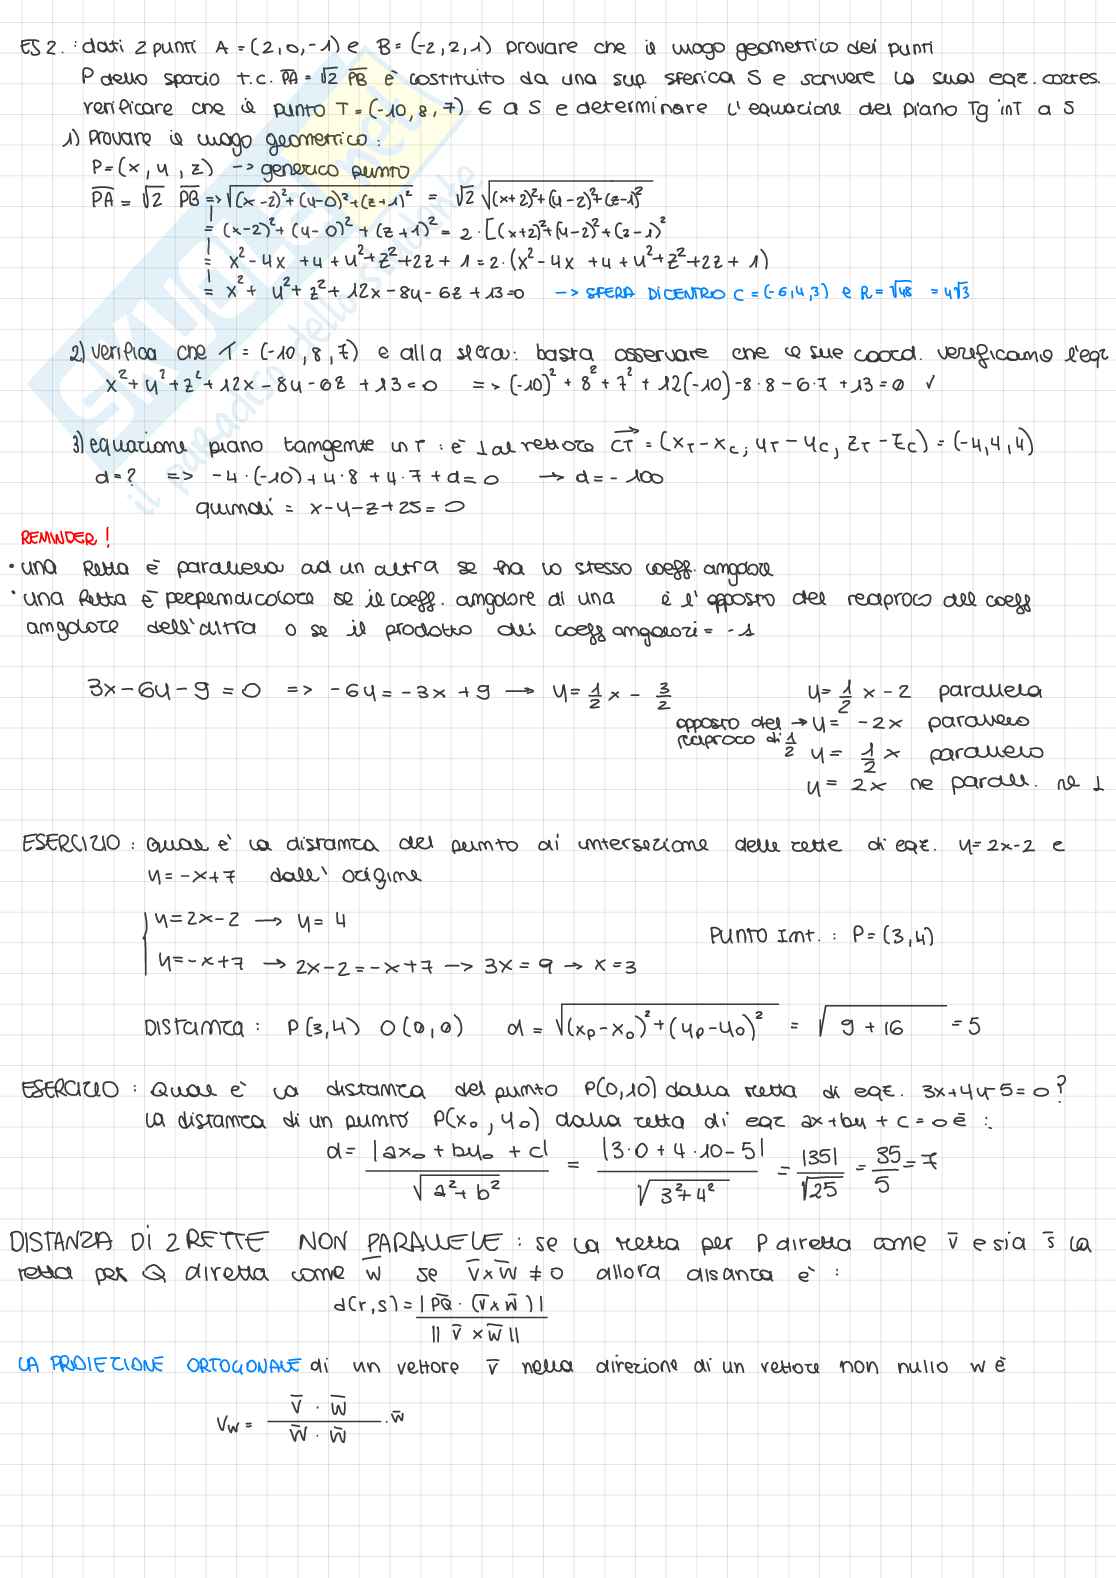 ES 2. : dati 2 punti A = (2, 0, -1) e B = (-2, 2, 1) provare che il luogo geometrico dei punti
P dello spazio t.c. PA = √2 PB è costituito da una sup sferica S e scrivere la sua eqz. cartes.
verificare che il punto T = (-10, 8, 7) ∈ a S e determinare l'equazione del piano Tg in T a S
1) Provare il luogo geometrico:
P = (x, y, z) -> generico punto
PA = √2 PB => √(x-2)²+(y-0)²+(z+1)² = √2 √(x+2)²+(y-2)²+(z-1)²
= (x-2)² + (y-0)² + (z+1)² = 2·[(x+2)²+(y-2)²+(z-1)²
= x² - 4x + 4 + y² + z² + 2z + 1 = 2·(x² - 4x + 4 + y² + z² + 2z + 1)
= x² + y² + z² + 12x - 8y - 6z + 13 = 0 -> SFERA DI CENTRO C = (-6, 4, 3) e R = √48 = 4√3
2) verifica che T = (-10, 8, 7) e alla sfera: basta osservare che le sue coord. verificano l'eqz
x² + y² + z² + 12x - 8y - 6z + 13 = 0 => (-10)² + 8² + 7² + 12(-10) - 8·8 - 6·7 + 13 = 0 ✓
3) equazione piano tangente in T : è ⊥ al vettore CT = (xT - xC, yT - yC, zT - zC) = (-4, 4, 4)
d = ? => -4·(-10) + 4·8 + 4·7 + d = 0 -> d = -100
quindi = x - y - z + 25 = 0
REMINDER!
• una Retta è parallela ad un altra se ha lo stesso coeff. angolare
• una Retta è perpendicolare se il coeff. angolare di una è l'opposto del reciproco del coeff
angolare dell'altra o se il prodotto dei coeff angolari = -1
3x - 6y - 9 = 0 => -6y = -3x + 9 -> y = 1/2 x - 3/2 y = 1/2 x - 2 parallela
opposto del reciproco di 1/2 -> y = -2x parallelo
y = 1/2 x parallelo
y = 2x ne parall. ne ⊥
ESERCIZIO : Qual è la distanza del punto di intersezione delle rette di eqz. y = 2x - 2 e
y = -x + 7 dall' origine
y = 2x - 2 -> y = 4
PUNTO Int. : P = (3, 4)
y = -x + 7 -> 2x - 2 = -x + 7 -> 3x = 9 -> x = 3
Distanza : P(3, 4) O(0, 0) d = √(xP - x0)² + (yP - y0)² = √9 + 16 = 5
ESERCIZIO : Qual è la distanza del punto P(0, 10) dalla retta di eqz. 3x + 4y - 5 = 0 ?
La distanza di un punto P(x0, y0) dalla retta di eqz ax + by + c = 0 è :
d = |ax0 + by0 + c| / √a² + b² = |3·0 + 4·10 - 5| / √3² + 4² = |35| / √25 = 35/5 = 7
DISTANZA DI 2 RETTE NON PARALLELE : se la retta per P diretta come v̄ e sia s̄ la
retta per Q diretta come w̄ se v̄ × w̄ ≠ 0 allora disanza è :
d(r, s) = |PQ · (v̄ × w̄)| / || v̄ × w̄ ||
LA PROIEZIONE ORTOGONALE di un vettore v̄ nella direzione di un vettore non nullo w è
Vw = v̄ · w̄ / w̄ · w̄ · w̄